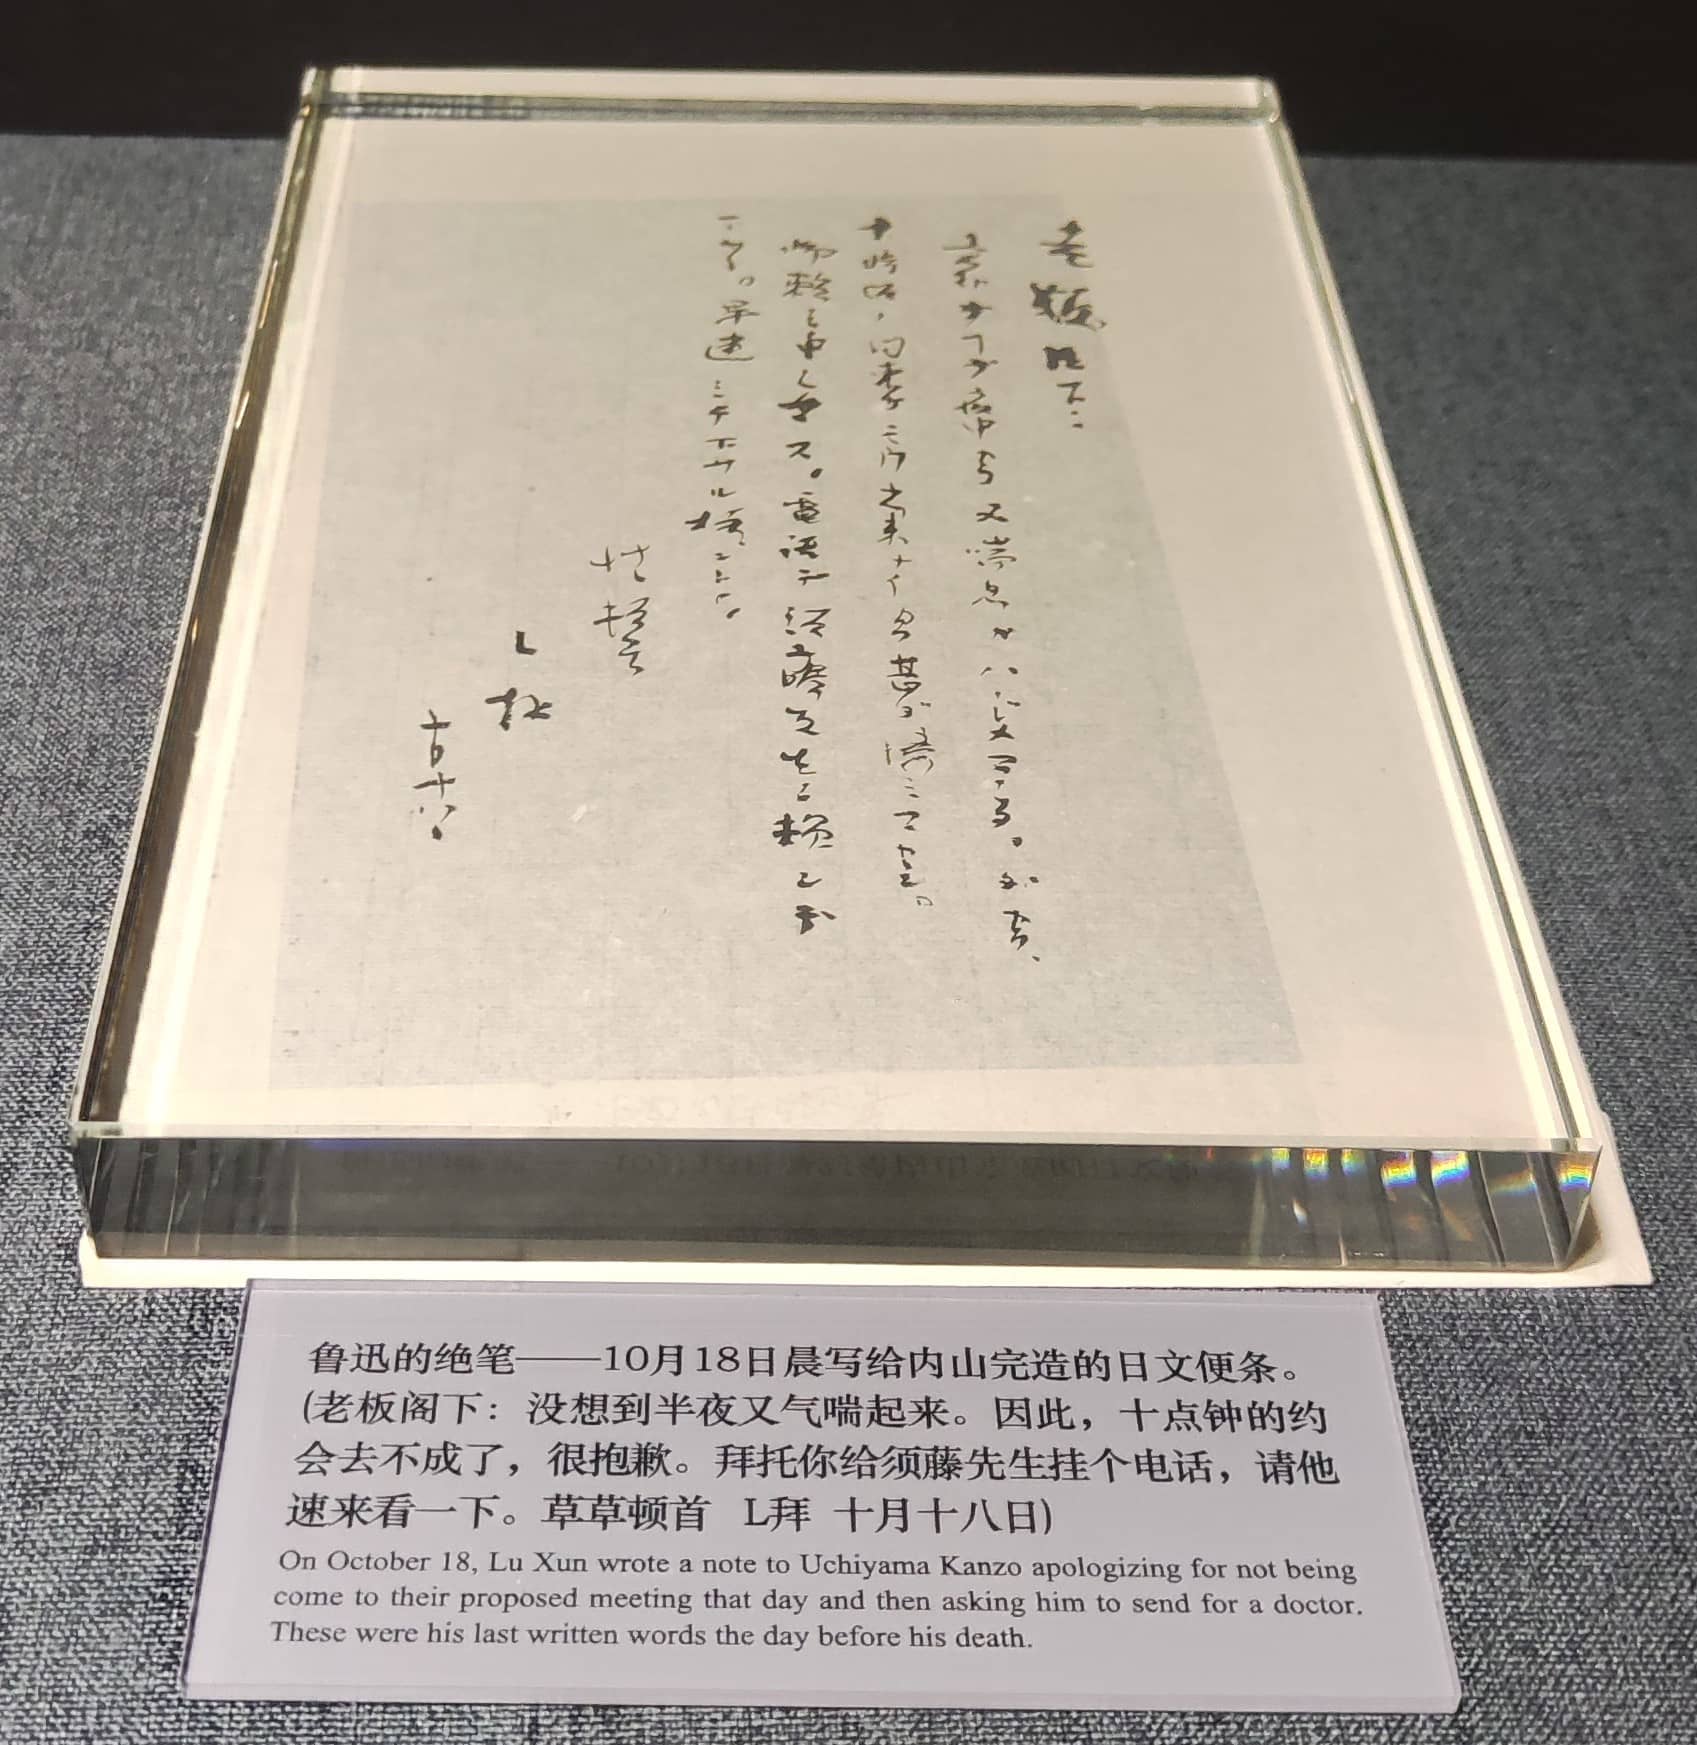 老板几下:
意外ナ事デ夜中カラ又喘息ガハジマッタ。ダカラ、
十時頃ノ約束モウ出来ナイカラ甚ダ済ミマセン。
御頼ミ申シマス。電話デ須藤先生ニ頼ンデ
下サイ。早速ミテ下サル様ニト。
草々頓首
L 拝
十月十八日
鲁迅的绝笔——10月18日晨写给内山完造的日文便条。
(老板阁下：没想到半夜又气喘起来。因此，十点钟的约
会去不成了，很抱歉。拜托你给须藤先生挂个电话，请他
速来看一下。草草顿首 L拜 十月十八日)
On October 18, Lu Xun wrote a note to Uchiyama Kanzo apologizing for not being
come to their proposed meeting that day and then asking him to send for a doctor.
These were his last written words the day before his death.